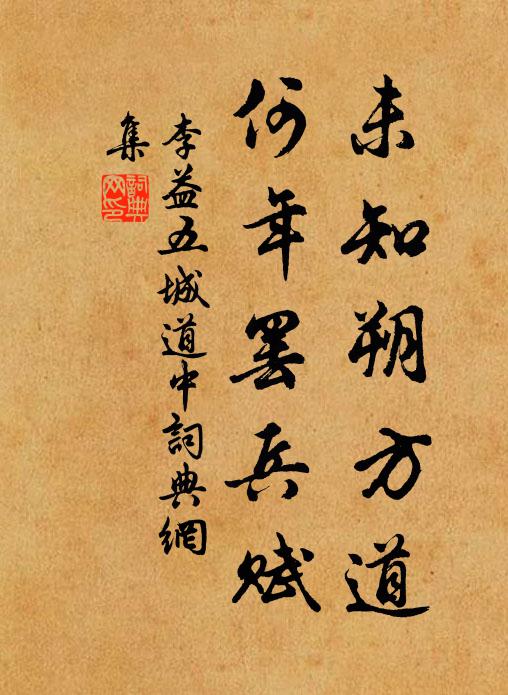 未知朔方道
何年罢兵赋
李益五城道中詞典網
集
詞典
网印